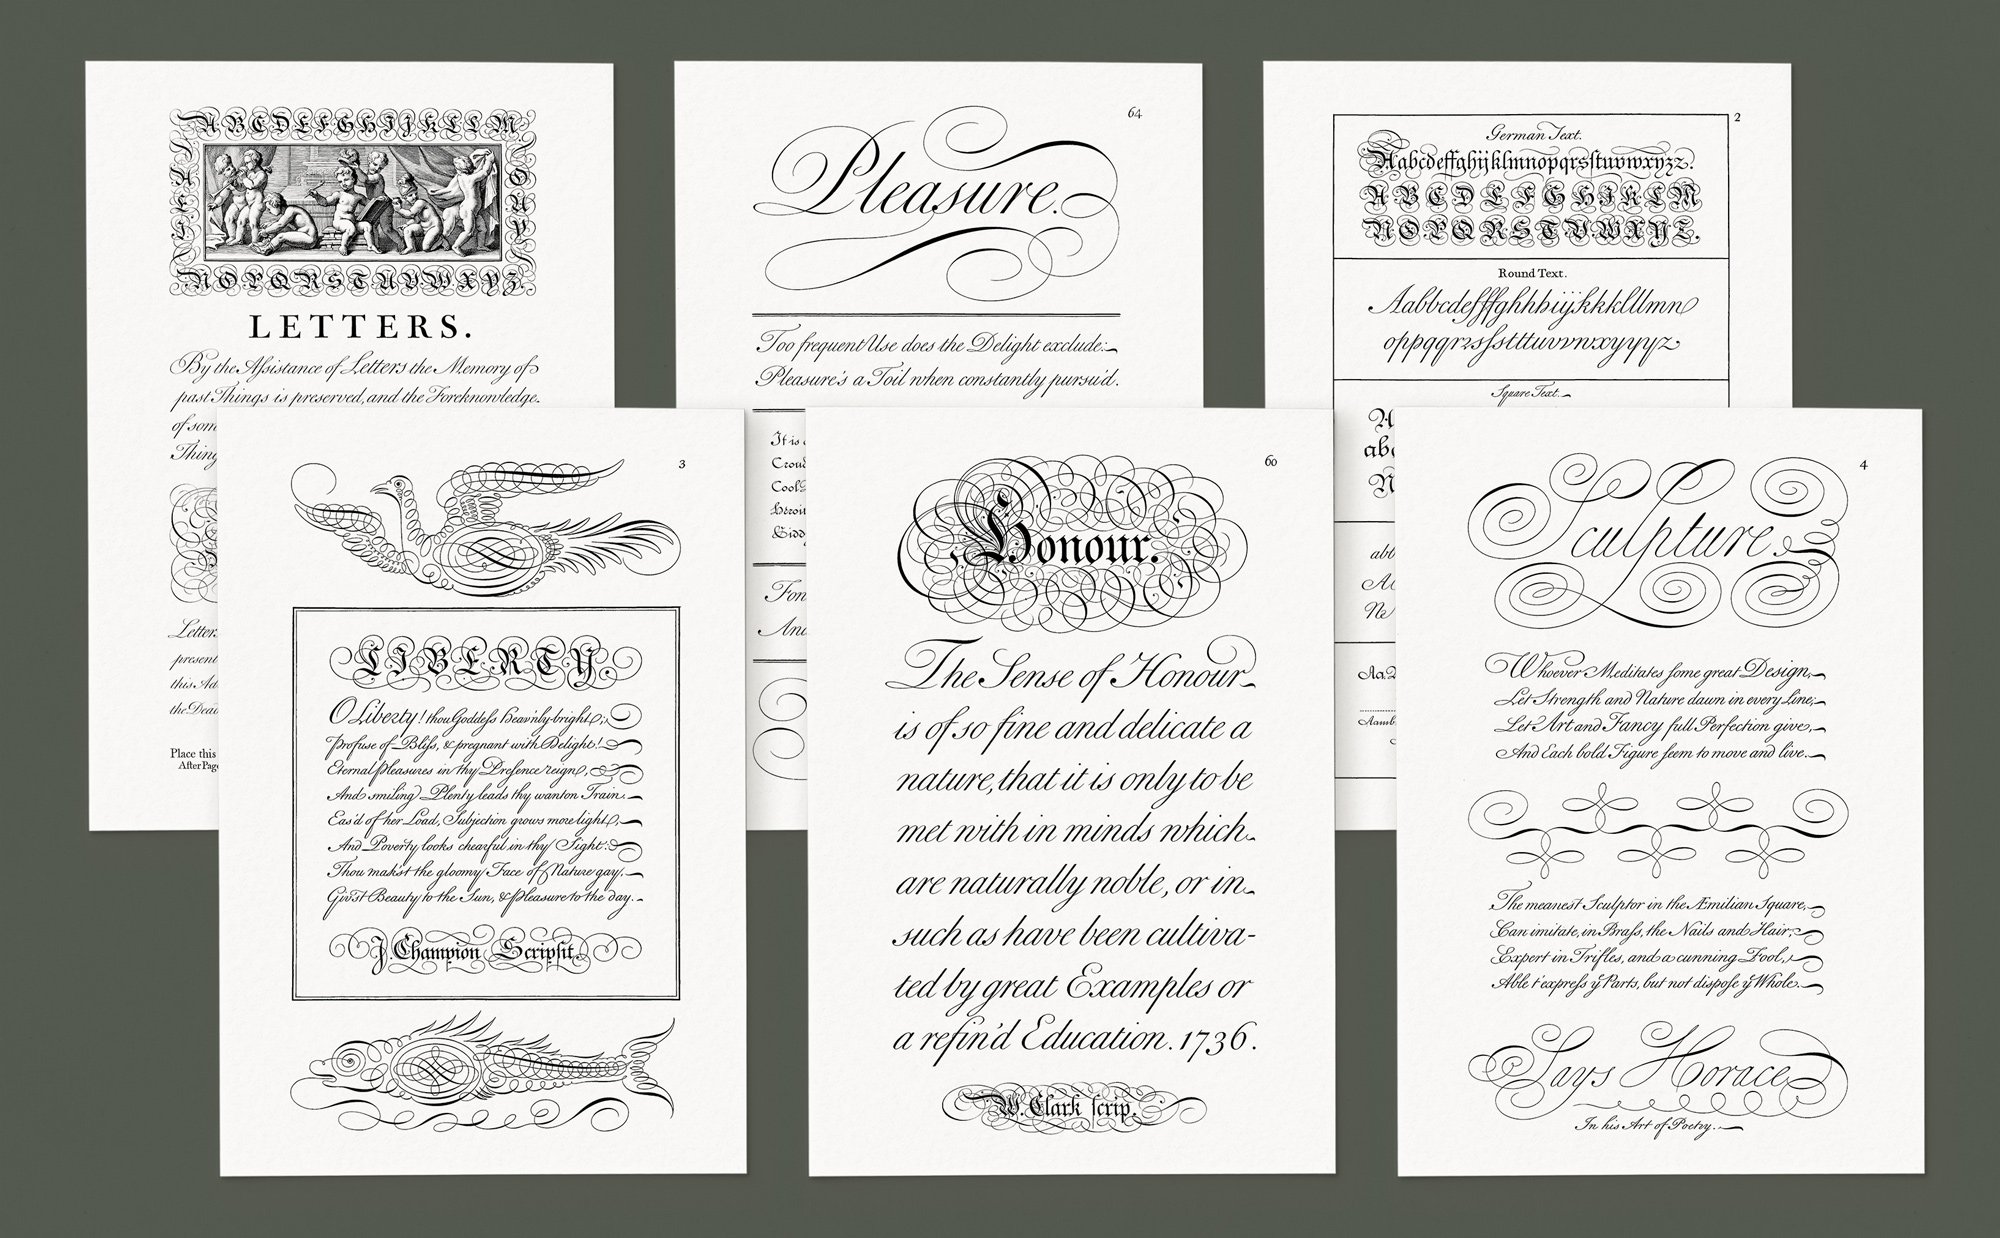 A B C D E F G H I J K L M
N O P Q R S T U V W X Y Z
LETTERS.
By the Aſsistance of Letters the Memory of
past Things is preserved, and the Foreknowledge
of som
Thing
Letter
present
this Ad
the Dead
Place this
After Page
64
Pleasure.
Too frequent Use does the Delight exclude:
Pleasure's a Toil when constantly pursu'd.
It is
Croud
Cool
Heroi
Gidd
Fon
And
2
German Text.
Aabcdeffghijklmnopqrsſtuvwxyzz.
A B C D E F G H I K L M
N O P Q R S T V W X Y Z.
Round Text.
Aabbcdefffghhhiijkkklllmn
oppqqrzsſstttuvvnxxyyyyz
Square Text.
A
abc
N
abb
Ne
Aa.
Aamb
3
LIBERTY
O Liberty! thou Goddeſs heav'nly bright,
Profuse of Bliſs, & pregnant with Delight!
Eternal pleasures in thy Presence reign,
And smiling Plenty leads thy wanton Train.
Eas'd of her Load, Subjection grows more light,
And Poverty looks chearful in thy Sight.
Thou mak'st the gloomy Face of Nature gay,
Giv'st Beauty to the Sun, & pleasure to the day.
J. Champion Scripſit.
60
Honour.
The Sense of Honour
is of so fine and delicate a
nature, that it is only to be
met with in minds which
are naturally noble, or in
such as have been cultiva-
ted by great Examples or
a refin'd Education. 1736.
W. Clark ſcrip.
4
Sculpture.
Whoever Meditates ſome great Design,
Let Strength and Nature dawn in every Line;
Let Art and Fancy full Perfection give,
And Each bold Figure ſeem to move and live.
The meanest Sculptor in the Æmilian Square,
Can imitate, in Braſs, the Nails and Hair;
Expert in Trifles, and a cunning Fool,
Able t'expreſs yᵉ Parts, but not dispoſe yᵉ Whole.
Says Horace,
In his Art of Poetry.